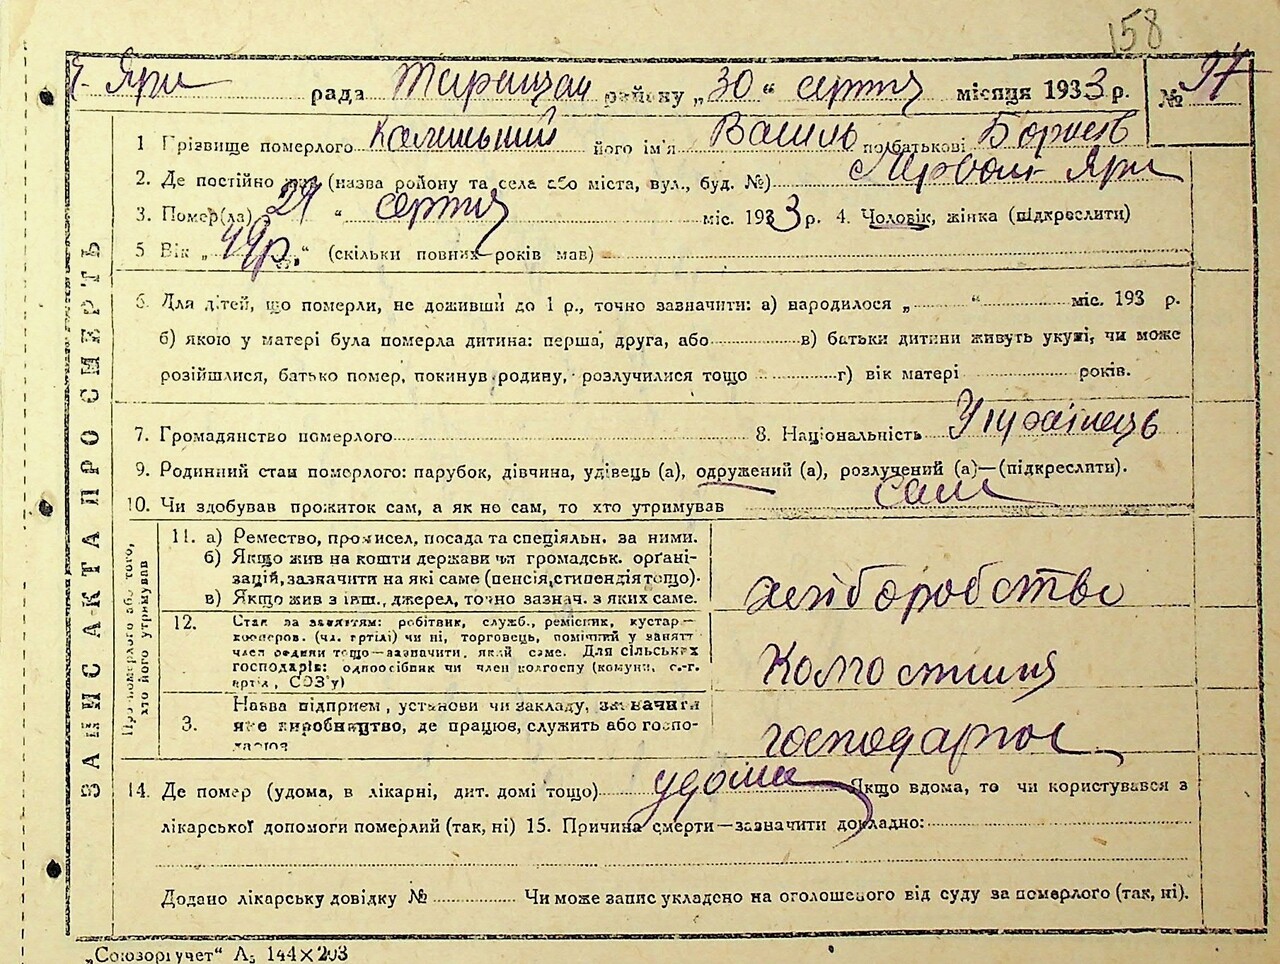 158
Яри рада Таращан району „30“ серпня місяця 1933 р. № 97
1 Прізвище померлого його ім'я Василь по батькові Борисів
2. Де постійно жив (назва району та села або міста, вул., буд. №) Яри
3. Помер(ла) „ “ серпня міс. 1933 р. 4. Чоловік, жінка (підкреслити)
5 Вік „49р.“ (скільки повних років мав)
6. Для дітей, що померли, не доживши до 1 р., точно зазначити: а) народилося „ “ міс. 193 р.
б) якою у матері була померла дитина: перша, друга, або в) батьки дитини живуть укупі, чи може
розійшлися, батько помер, покинув родину, розлучилися тощо г) вік матері років.
7. Громадянство померлого 8. Національність Українець
9. Родинний стан померлого: парубок, дівчина, удівець (а), одружений (а), розлучений (а)—(підкреслити).
10. Чи здобував прожиток сам, а як не сам, то хто утримував сам
ЗАПИС АКТА ПРО СМЕРТЬ
Про померлого або того, хто його утримував
11. а) Ремество, промисел, посада та спеціяльн. за ними.
б) Якщо жив на кошти держави чи громадськ. органі-
зацій, зазначити на які саме (пенсія, стипендія тощо).
в) Якщо жив з інш., джерел, точно зазнач. з яких саме.
хліборобство
12. Стан за заняттям: робітник, служб., ремісник, кустар—
кооперов. (чл. артілі) чи ні, торговець, помічний у занятт
член родини тощо—зазначити, який саме. Для сільських
господарів: одноосібник чи член колгоспу (комуни, с.-г.
артіл, СОЗ'у)
3. Назва підприєм, установи чи закладу, зазначити
яке виробництво, де працює, служить або госпо-
господарює
14. Де помер (удома, в лікарні, дит. домі тощо) удома Якщо вдома, то чи користувався з
лікарської допомоги померлий (так, ні) 15. Причина смерти—зазначити докладно:
Додано лікарську довідку № Чи може запис укладено на оголошеного від суду за померлого (так, ні).
„Союзоргучет“ А5 144×203